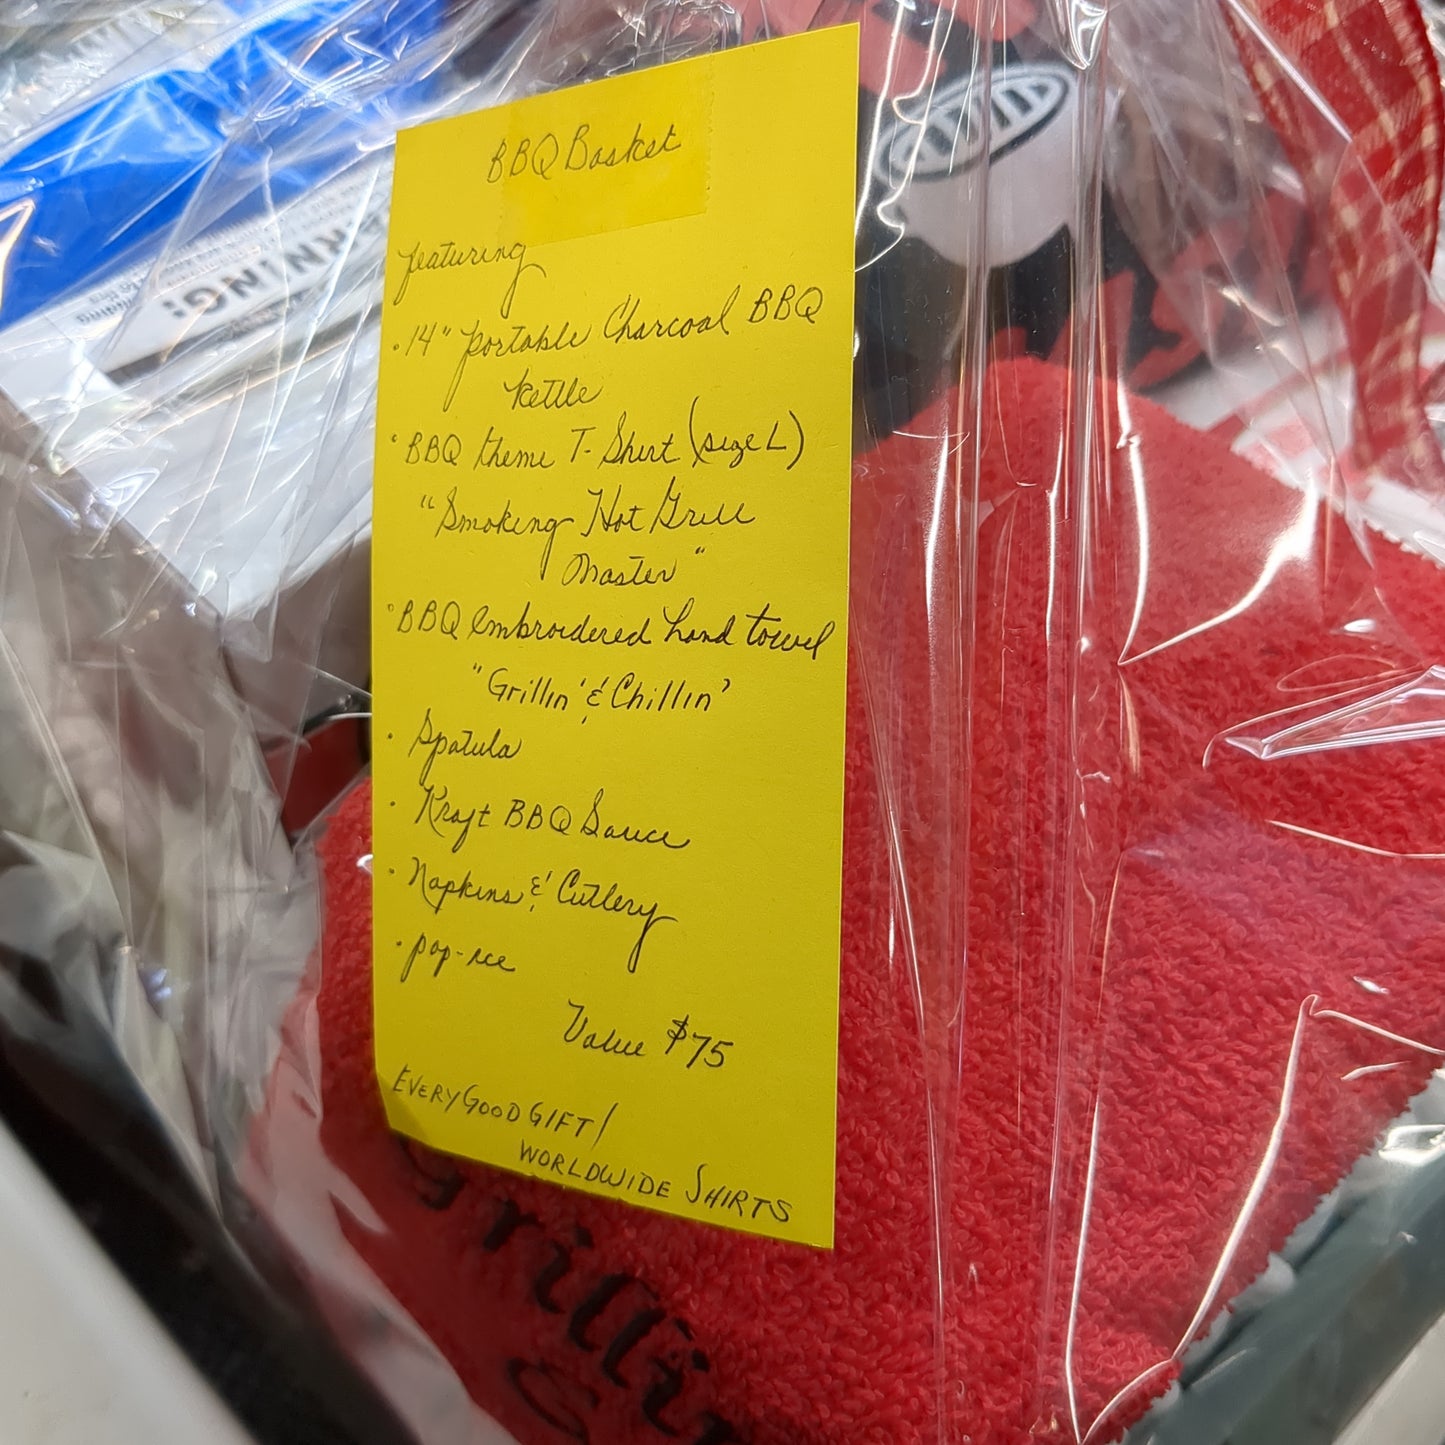 BBQ Basket
featuring
• 14" portable Charcoal BBQ
kettle
• BBQ theme T-Shirt (size L)
"Smoking Hot Grill
Master"
• BBQ embroidered hand towel
"Grillin' & Chillin'
• Spatula
• Kraft BBQ Sauce
• Napkins & Cutlery
• pop-ice
Value $75
EVERY GOOD GIFT/
WORLDWIDE SHIRTS
Grillin